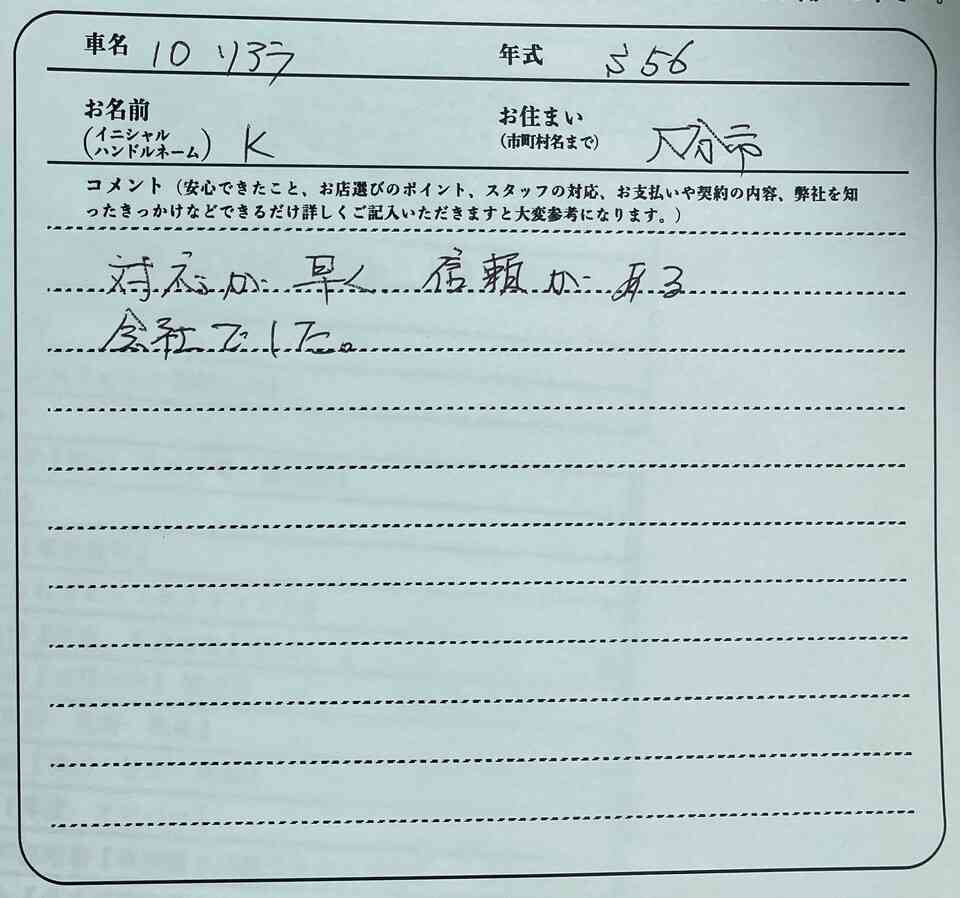 車名 10 ソアラ 年式 S56
お名前 お住まい
(イニシャル ハンドルネーム) K (市町村名まで) 大分市
コメント（安心できたこと、お店選びのポイント、スタッフの対応、お支払いや契約の内容、弊社を知
ったきっかけなどできるだけ詳しくご記入いただきますと大変参考になります。）
対応が早く 信頼がある
会社でした。